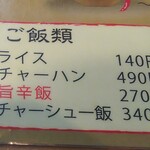 ご飯類
ライス 140円
チャーハン 490円
旨辛飯 270
チャーシュー飯 340